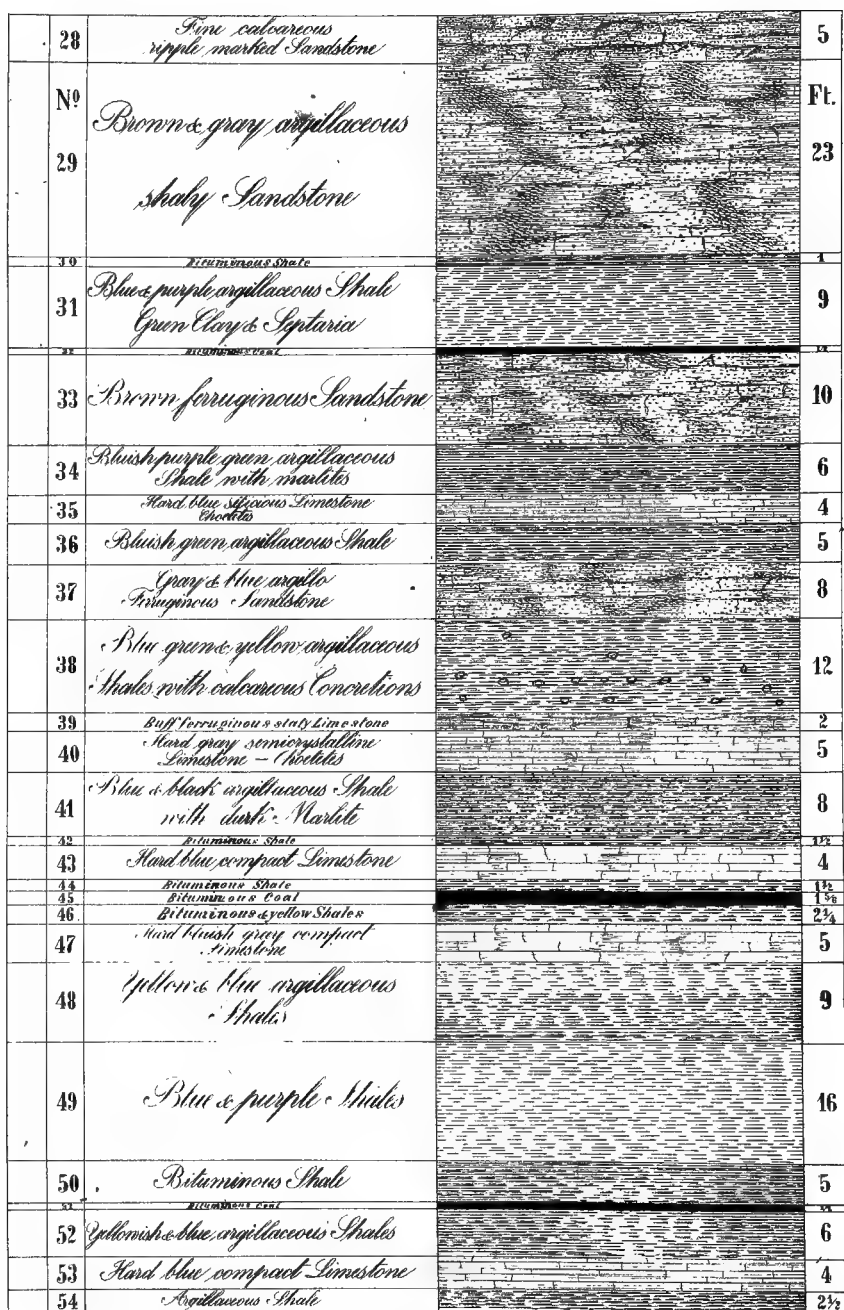 28 Fine calcareous 5
ripple marked Sandstone
No Ft.
Brown & gray argillaceous
29 23
shaly Sandstone
30 Bituminous Shale 1
Blue & purple argillaceous Shale
31 9
Green Clay & Septaria
32 Bituminous Coal
33 Brown ferruginous Sandstone 10
Bluish purple green argillaceous
34 6
Shale with marlites
Hard blue silicious Limestone
35 4
Choctites
36 Bluish green argillaceous Shale 5
Gray & blue argillo
37 8
Ferruginous Sandstone
Blue green & yellow argillaceous
38 12
Shales with calcareous Concretions
39 Buff ferruginous slaty Limestone 2
Hard gray semicrystalline
40 5
Limestone – Choctites
Blue & black argillaceous Shale
41 8
with dark Marlite
42 Bituminous Shale 1½
43 Hard blue compact Limestone 4
44 Bituminous Shale 1½
45 Bituminous Coal 1⅝
46 Bituminous & yellow Shales 2¼
Hard bluish gray compact
47 5
Limestone
Yellow & blue argillaceous
48 9
Shales
49 Blue & purple Shales 16
50 Bituminous Shale 5
Bituminous Coal
52 Yellowish & blue argillaceous Shales 6
53 Hard blue compact Limestone 4
54 Argillaceous Shale 2½